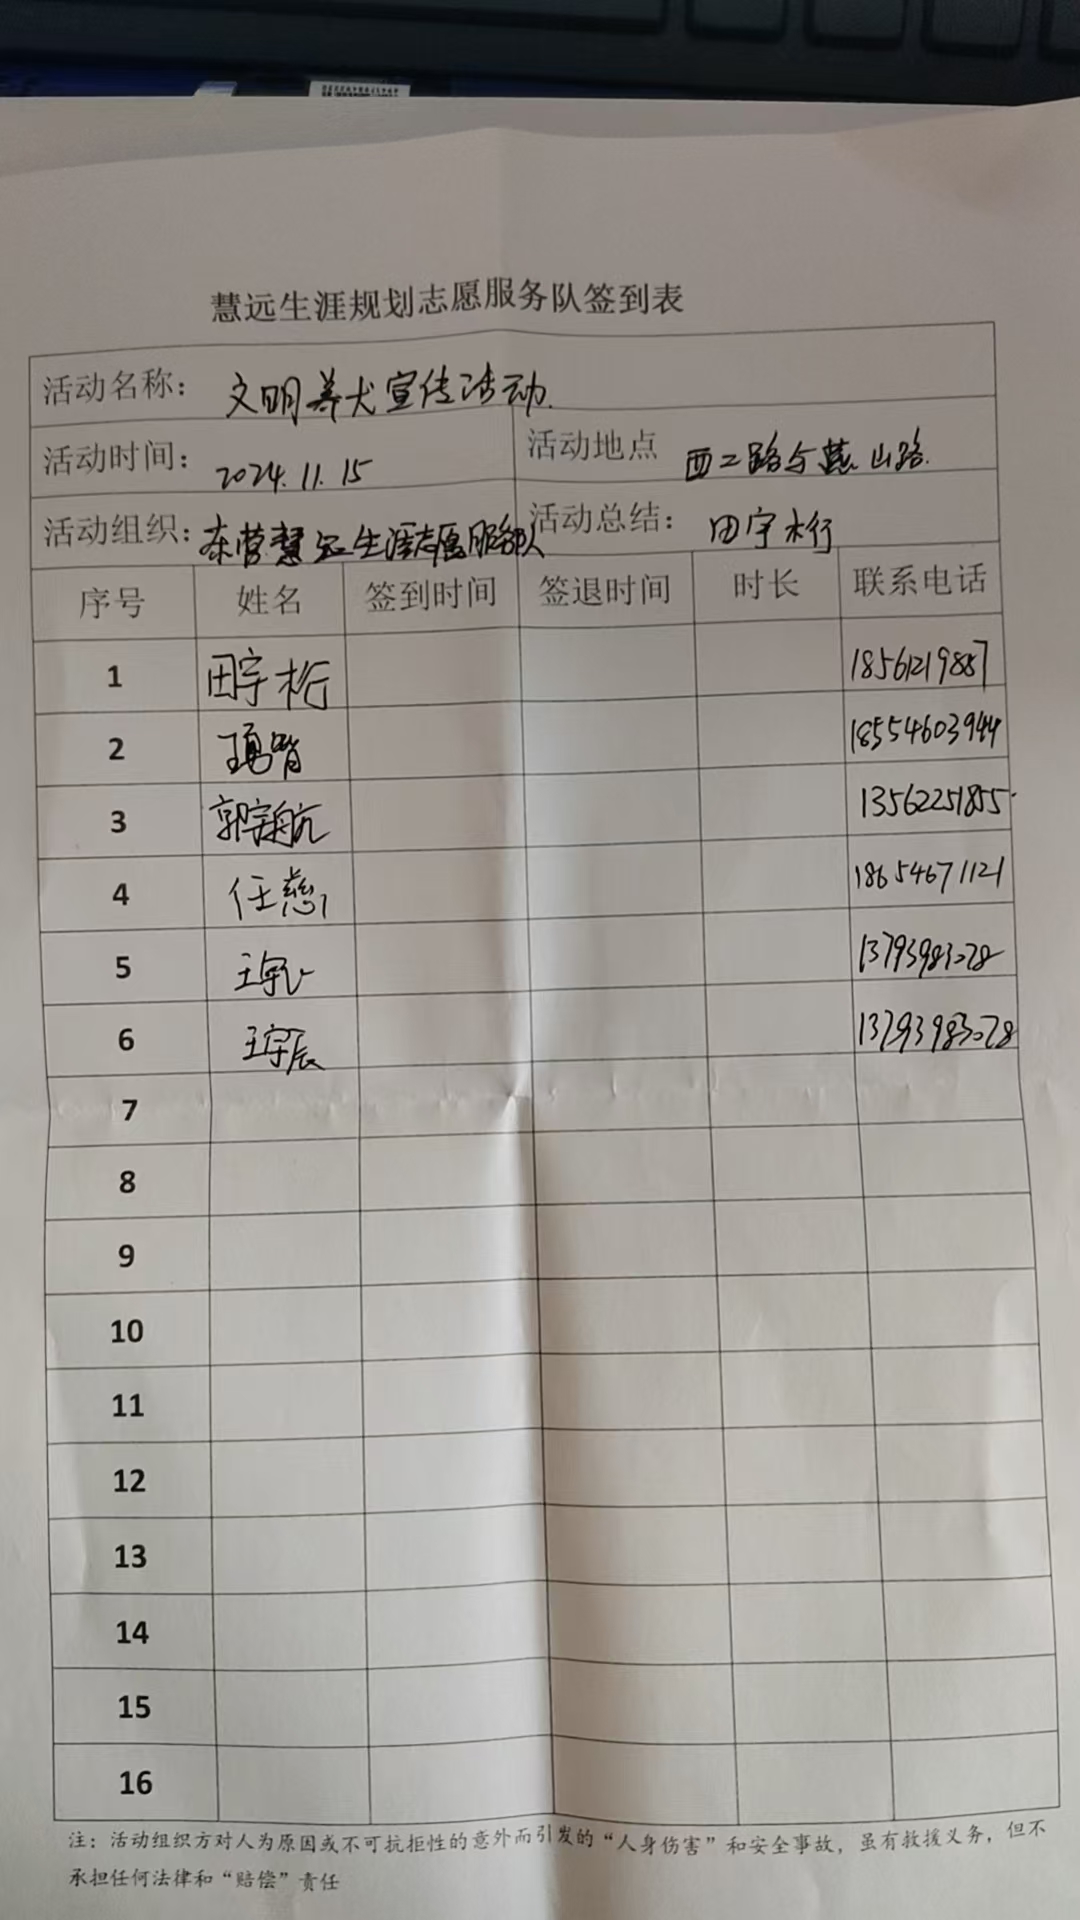 慧远生涯规划志愿服务队签到表
活动名称： 文明养犬宣传活动.
活动时间： 2024.11.15 活动地点 西二路与燕山路.
活动组织： 东营慧远生涯志愿服务队 活动总结： 田宇桁
序号 姓名 签到时间 签退时间 时长 联系电话
1 田宇桁 18561219887
2 18554603944
3 郭宗航 13562251855
4 任慈 18654671121
5 王宇飞 13793983078
6 王宇辰 13793983078
7
8
9
10
11
12
13
14
15
16
注：活动组织方对人为原因或不可抗拒性的意外而引发的“人身伤害”和安全事故，虽有救援义务，但不
承担任何法律和“赔偿”责任